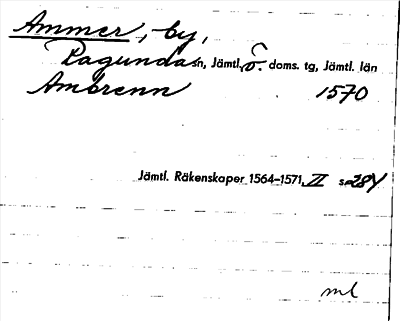 Ammer, by,
Ragunda sn, Jämtl. ö. doms. tg, Jämtl. län
Ambrenn 1570
Jämtl. Räkenskaper 1564-1571, II s. 284
ml